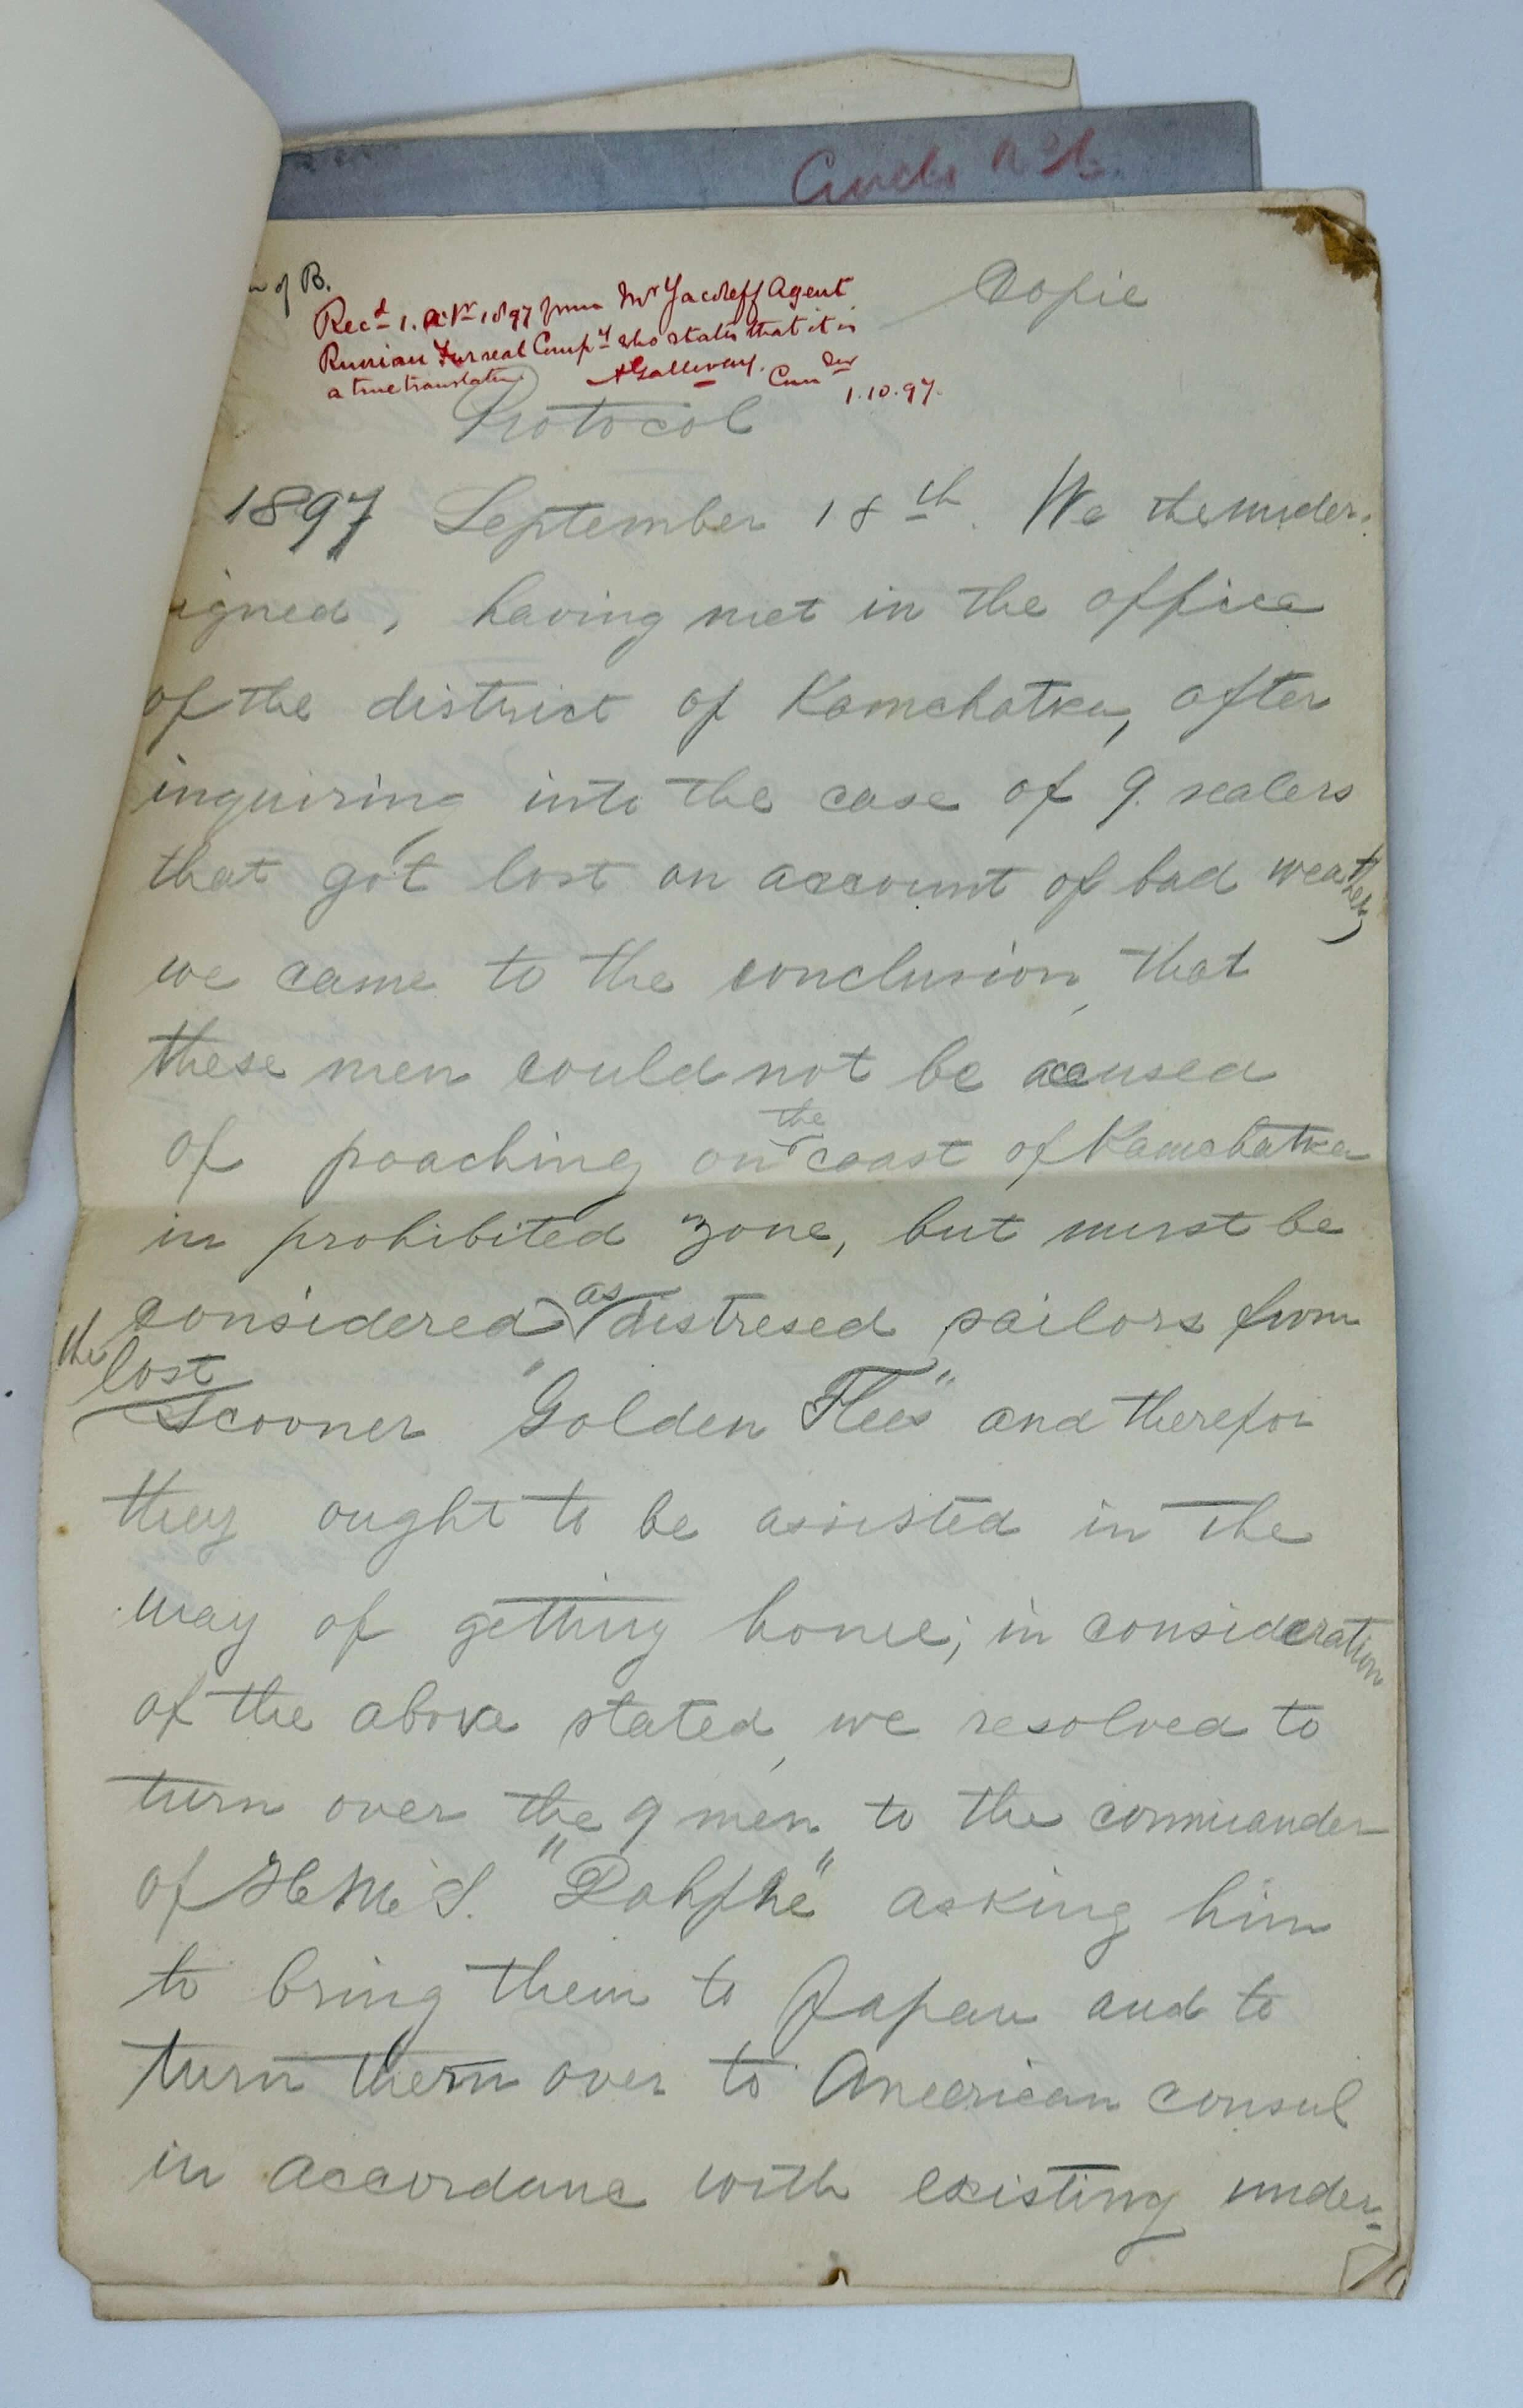 of B.
Recd 1. Octr 1897 from Mr Yacoleff Agent
Russian Fur seal Compy who states that it is
a true translation
AGalloway. Comder
1.10.97.
Copie
Protocol
1897 September 18th. We the under-
igned, having met in the office
of the district of Kamchatka, after
inquiring into the case of 9. sealers
that got lost on account of bad weather,
we came to the conclusion, that
these men could not be accused
of poaching on the coast of Kamchatka
in prohibited zone, but must be
considered as distresed sailors from
the lost
Scooner "Golden Flees" and therefor
they ought to be assisted in the
way of getting home; in consideration
of the above stated, we resolved to
turn over the 9 men to the commander
of H.M.S. "Dahphe" asking him
to bring them to Japan and to
turn them over to American consul
in accordanc with existing under-